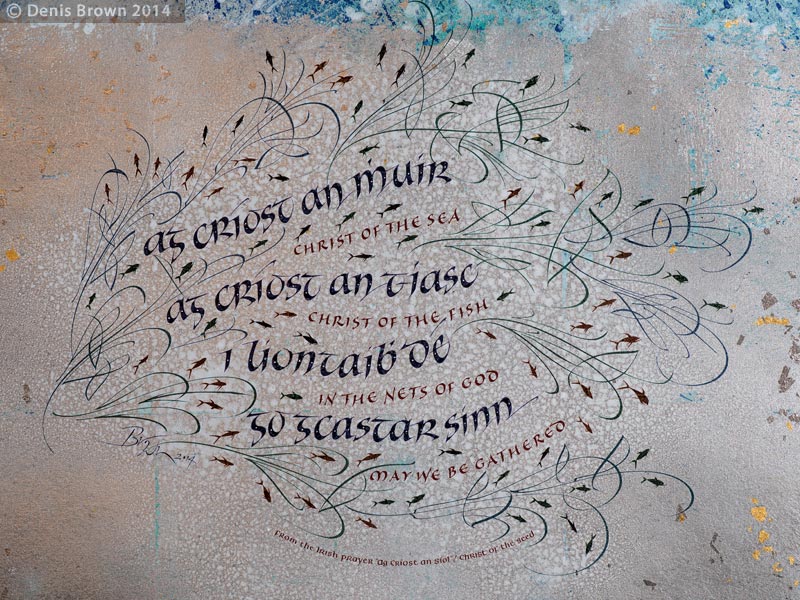 © Denis Brown 2014
ag críost an ṁuir
CHRIST OF THE SEA
ag críost an t-iasc
CHRIST OF THE FISH
i líontaiḃ dé
IN THE NETS OF GOD
go gcastar sinn
MAY WE BE GATHERED
Brown 2014
From the Irish prayer 'Ag Críost an Síol' / Christ of the seed